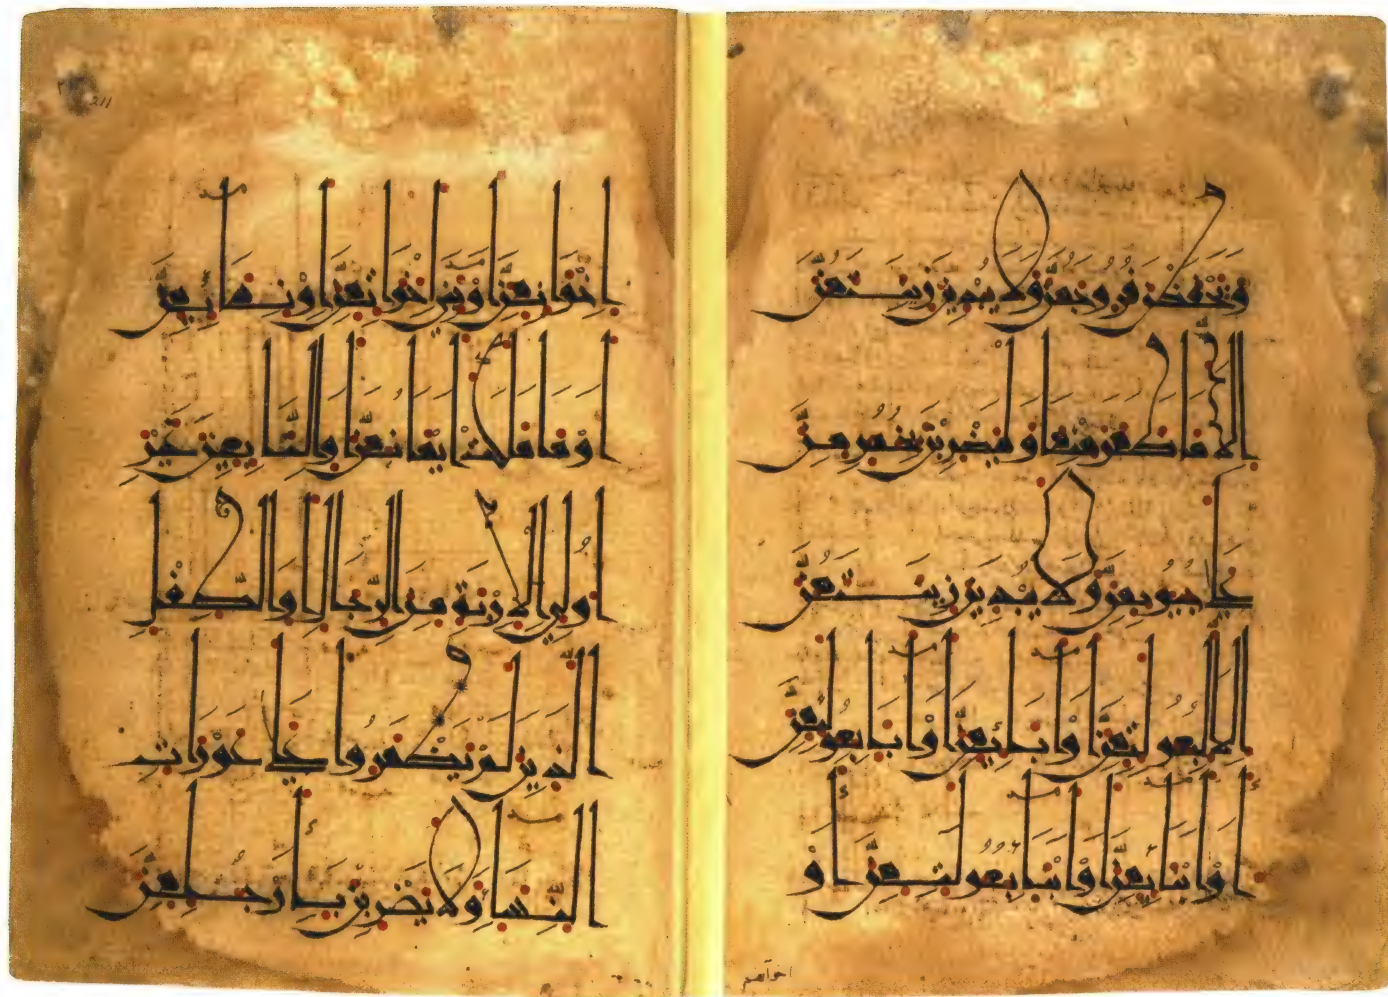 ويحفظن فروجهن ولا يبدين زينتهن
الا ما ظهر منها وليضربن بخمرهن
على جيوبهن ولا يبدين زينتهن
الا لبعولتهن او ابائهن او ابا بعولتهن
او ابنائهن او ابنا بعولتهن او
اخوانهن
211
اخوانهن او بني اخواتهن او نسائهن
او ما ملكت ايمانهن او التابعين غير
اولي الاربة من الرجال او الطفل
الذين لم يظهروا على عورات
النسا ولا يضربن بارجلهن